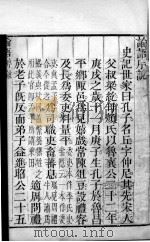 論語序說
史記世家曰孔子名丘字仲尼其先宋人
父叔梁紇母顏氏以魯襄公二十二年
庚戌之歲十一月庚子生孔子於魯昌
平鄉陬邑為兒嬉戲常陳俎豆設禮容
及長為委吏料量平委吏本作季氏史
為司職吏畜蕃息
適周問禮
於老子既反而弟子益進昭公二十五